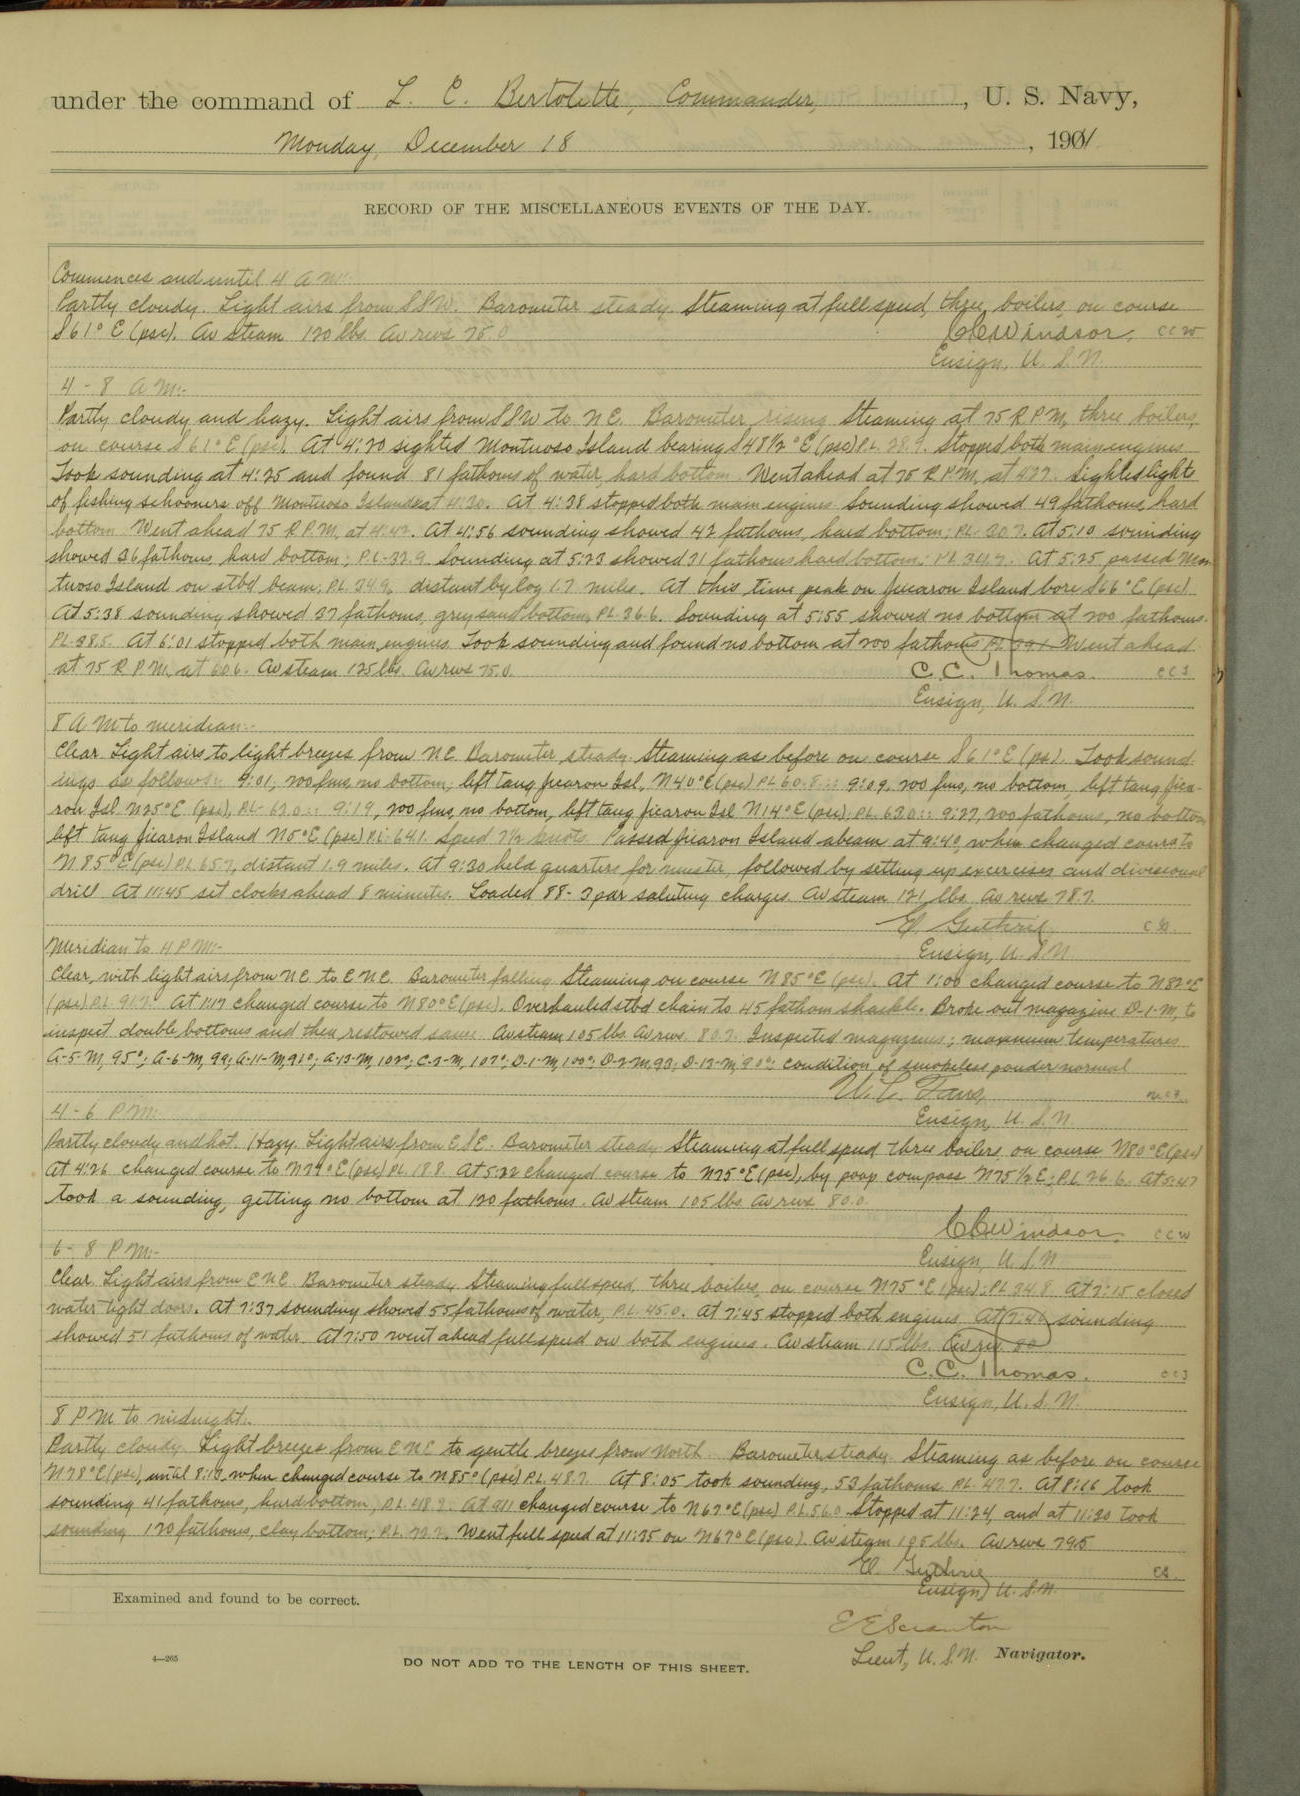 under the command of L. C. Bertolette, Commander, , U. S. Navy,
Monday, December 18 , 1901
RECORD OF THE MISCELLANEOUS EVENTS OF THE DAY.
Commences and until 4 A M:-
Partly cloudy. Light airs from SSW. Barometer steady. Steaming at full speed, three boilers, on course
S61°E (psc). Av steam 120 lbs. Av revs 75.0 C C Windsor, CCW
Ensign, U. S. N.
4 - 8 A M:-
Partly cloudy and hazy. Light airs from SSW to NE. Barometer rising. Steaming at 75 R P M, three boilers,
on course S61°E (psc). At 4:20 sighted Montuoso Island bearing S48½°E (psc) P.L. 28.9. Stopped both main engines
Took sounding at 4:25 and found 81 fathoms of water, hard bottom. Went ahead at 75 R P M, at 4:27. Sighted lights
of fishing schooners off Montuoso Island at 4:30. At 4:38 stopped both main engines. Sounding showed 49 fathoms, hard
bottom. Went ahead 75 R P M, at 4:42. At 4:56 sounding showed 42 fathoms, hard bottom; P.L. 30.7. At 5:10 sounding
showed 36 fathoms, hard bottom; P.L. 32.9. Sounding at 5:23 showed 31 fathoms hard bottom; P.L. 34.7. At 5:25 passed Mon-
tuoso Island on stbd beam; P.L. 34.9, distant by log 1.7 miles. At this time peak on Jicaron Island bore S66°E (psc)
At 5:38 sounding showed 37 fathoms, grey sand bottom, P.L. 36.6. Sounding at 5:55 showed no bottom at 200 fathoms.
P.L. 38.5. At 6:01 stopped both main engines. Took sounding and found no bottom at 200 fathoms P.L. 39.1. Went ahead
at 75 R P M, at 6:06. Av steam 125 lbs. Av revs 75.0. C. C. Thomas. CCT
Ensign, U. S. N.
8 A M to meridian:-
Clear. Light airs to light breezes from NE. Barometer steady. Steaming as before on course S61°E (psc). Took sound-
ings as follows:- 9:01, 200 fms, no bottom; left tang Jicaron Isl, N40°E (psc) P.L. 60.8:: 9:09, 200 fms, no bottom, left tang Jica-
ron Isl N25°E (psc), P.L. 62.0:: 9:19, 200 fms, no bottom, left tang Jicaron Isl N14°E (psc), P.L. 63.0:: 9:27, 200 fathoms, no bottom
left tang Jicaron Island N5°E (psc) P.L. 64.1. Speed 7½ knots. Passed Jicaron Island abeam at 9:40, when changed course to
N85°E (psc) P.L. 65.7, distant 1.9 miles. At 9:30 held quarters for muster, followed by setting up exercises and divisional
drill. At 11:45 set clocks ahead 8 minutes. Loaded 88- 3 pdr saluting charges. Av steam 121 lbs. Av revs 78.7.
E Guthrie
Ensign, U. S. N.
Meridian to 4 P M:-
Clear, with light airs from NE to ENE. Barometer falling. Steaming on course N85°E (psc). At 1:00 changed course to N82°E
(psc) P.L. 91.7. At 1:17 changed course to N80°E (psc). Overhauled stbd chain to 45 fathom shackle. Broke out magazine D-1-M, to
inspect double bottoms and then restowed same. Av steam 105 lbs. Av revs 80.7. Inspected magazines; maximum temperatures
A-5-M, 95°; A-6-M, 99; A-11-M, 91°; A-13-M, 102°; C-2-M, 107°; D-1-M, 100°; D-2-M, 93; D-13-M, 90°; Condition of smokeless powder normal
Ensign, U. S. N.
4 - 6 P M:-
Partly cloudy and hot. Hazy. Light airs from ESE. Barometer steady. Steaming at full speed three boilers, on course N80°E (psc)
At 4:26 changed course to N79°E (psc) P.L. 18.8. At 5:22 changed course to N75°E (psc), by poop compass N75½E; P.L. 26.6. At 5:47
took a sounding, getting no bottom at 120 fathoms. Av steam 105 lbs Av revs 80.0.
C C Windsor, CCW
Ensign, U. S. N.
6 - 8 P M:-
Clear. Light airs from ENE. Barometer steady. Steaming full speed, three boilers, on course N75°E (psc); P.L. 34.8. At 7:15 closed
water tight doors. At 7:37 sounding showed 55 fathoms of water, P.L. 45.0. At 7:45 stopped both engines. At 7:46 sounding
showed 51 fathoms of water. At 7:50 went ahead full speed on both engines. Av steam 115 lbs. Av rev. 80
C. C. Thomas. CCT
Ensign, U. S. N.
8 P M to midnight:-
Partly cloudy. Light breezes from ENE to gentle breezes from North. Barometer steady. Steaming as before on course
N78°E (psc), until 8:10, when changed course to N85° (psc) P.L. 48.7. At 8:05 took sounding, 53 fathoms P.L. 47.7. At 8:16 took
sounding 41 fathoms, hard bottom, P.L. 48.7. At 9:11 changed course to N67°E (psc) P.L. 56.0. Stopped at 11:24, and at 11:30 took
sounding 120 fathoms, clay bottom; P.L. 72.7. Went full speed at 11:35 on N67°E (psc). Av steam 105 lbs. Av revs 79.5
E. Guthrie
Ensign, U. S. N.
Examined and found to be correct.
E E Scranton
Lieut, U. S. N. Navigator.
4—265
DO NOT ADD TO THE LENGTH OF THIS SHEET.